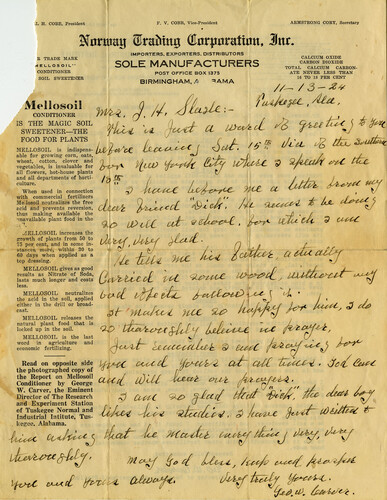 H. COBB, President
F. V. COBB, Vice-President
ARMSTRONG CORY, Secretary
Norway Trading Corporation, Inc.
TRADE MARK
"MELLOSOIL"
CONDITIONER
SOIL SWEETENER
IMPORTERS, EXPORTERS, DISTRIBUTORS
SOLE MANUFACTURERS
POST OFFICE BOX 1375
BIRMINGHAM, AMA
CALCIUM OXIDE
CARBON DIOXIDE
TOTAL CALCIUM CARBON-
ATE NEVER LESS THAN
TO 98 PER CENT
Mellosoil
CONDITIONER
IS THE MAGIC SOIL
SWEETENER—THE
FOOD FOR PLANTS
MELLOSOIL is indispensable
for growing corn, oats,
wheat, cotton, clover and
vegetables, is invaluable for
all flowers, hot-house plants
and all departments of horti-
culture.
When used in connection
with commercial fertilizers
Mellosoil neutralizes the
free acid and prevents reversion,
thus making available the
unavailable plant food in the
MELLOSOIL increases the
growth of plants from 50 to
75 per cent, and in some in-
stances more, within 30 to
60 days when applied as a
top dressing.
MELLOSOIL gives as good
results as Nitrate of Soda,
lasts much longer and costs
less.
MELLOSOIL neutralizes the
acid in the soil, applied
either in the drill or broad-
cast.
MELLOSOIL releases the
natural plant food that is
locked up in the soil.
MELLOSOIL is the last
word in agriculture and
economic fertilizing.
Read on opposite side
the photographed copy of
the Report on Mellosoil
Conditioner by George
W. Carver, the Eminent
Director of The Research
and Experiment Station
of Tuskegee Normal and
Industrial Institute, Tus-
kegee, Alabama.
11-13-24
Tuskegee, Ala.
Mrs. J. H.
This is just a word of greeting to you
before leaving Sat. 15th Via of the Southern
for New York City where I speak on the
18th.
I have before me a letter from my
dear friend "Dick". He seems to be doing
so well at school, for which I am
very, very glad.
He tells me his father, actually
carried in some wood, without any
bad effects following it.
It makes me so happy for him, I do
so thoroughly believe in prayer.
Just remember I am praying for
you and yours at all times. God can
and will hear our prayers.
I am so glad that "Dick", the dear boy
likes his studies. I have just written to
him asking that he master everything very, very
thoroughly.
May God bless, keep and prosper
you and yours always.
Very truly yours.
Geo. W. Carver.